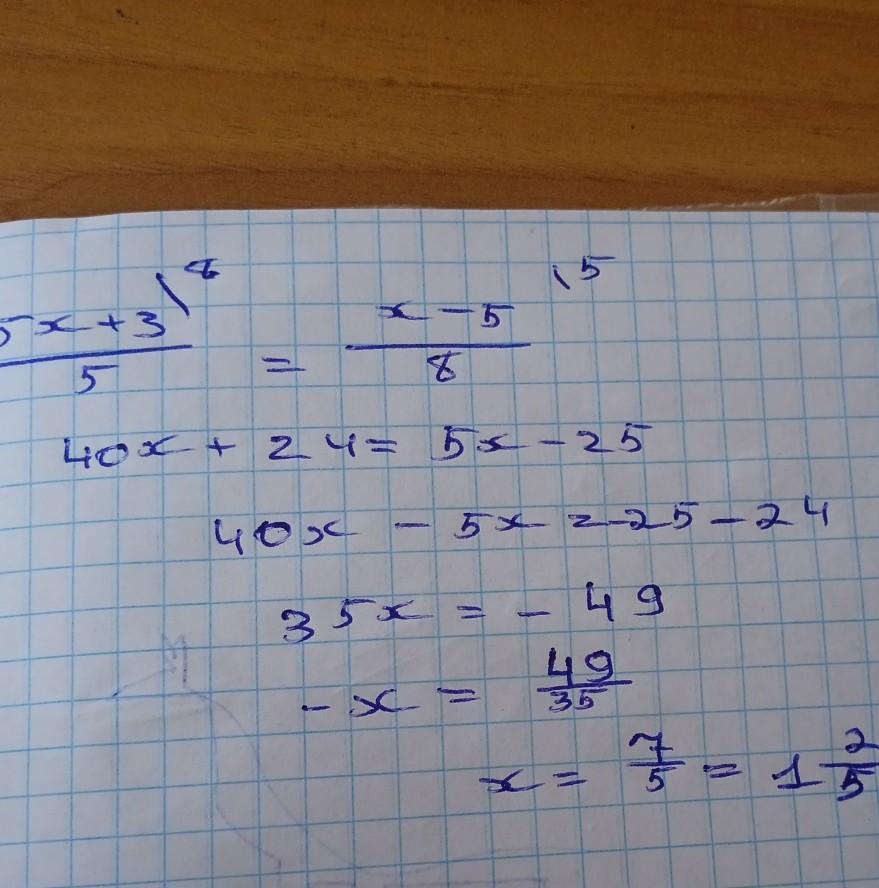 5x+3 \8 / 5 = x-5 \5 / 8
40x + 24 = 5x - 25
40x - 5x = -25 - 24
35x = - 49
-x = 49/35
x = 7/5 = 1 2/5